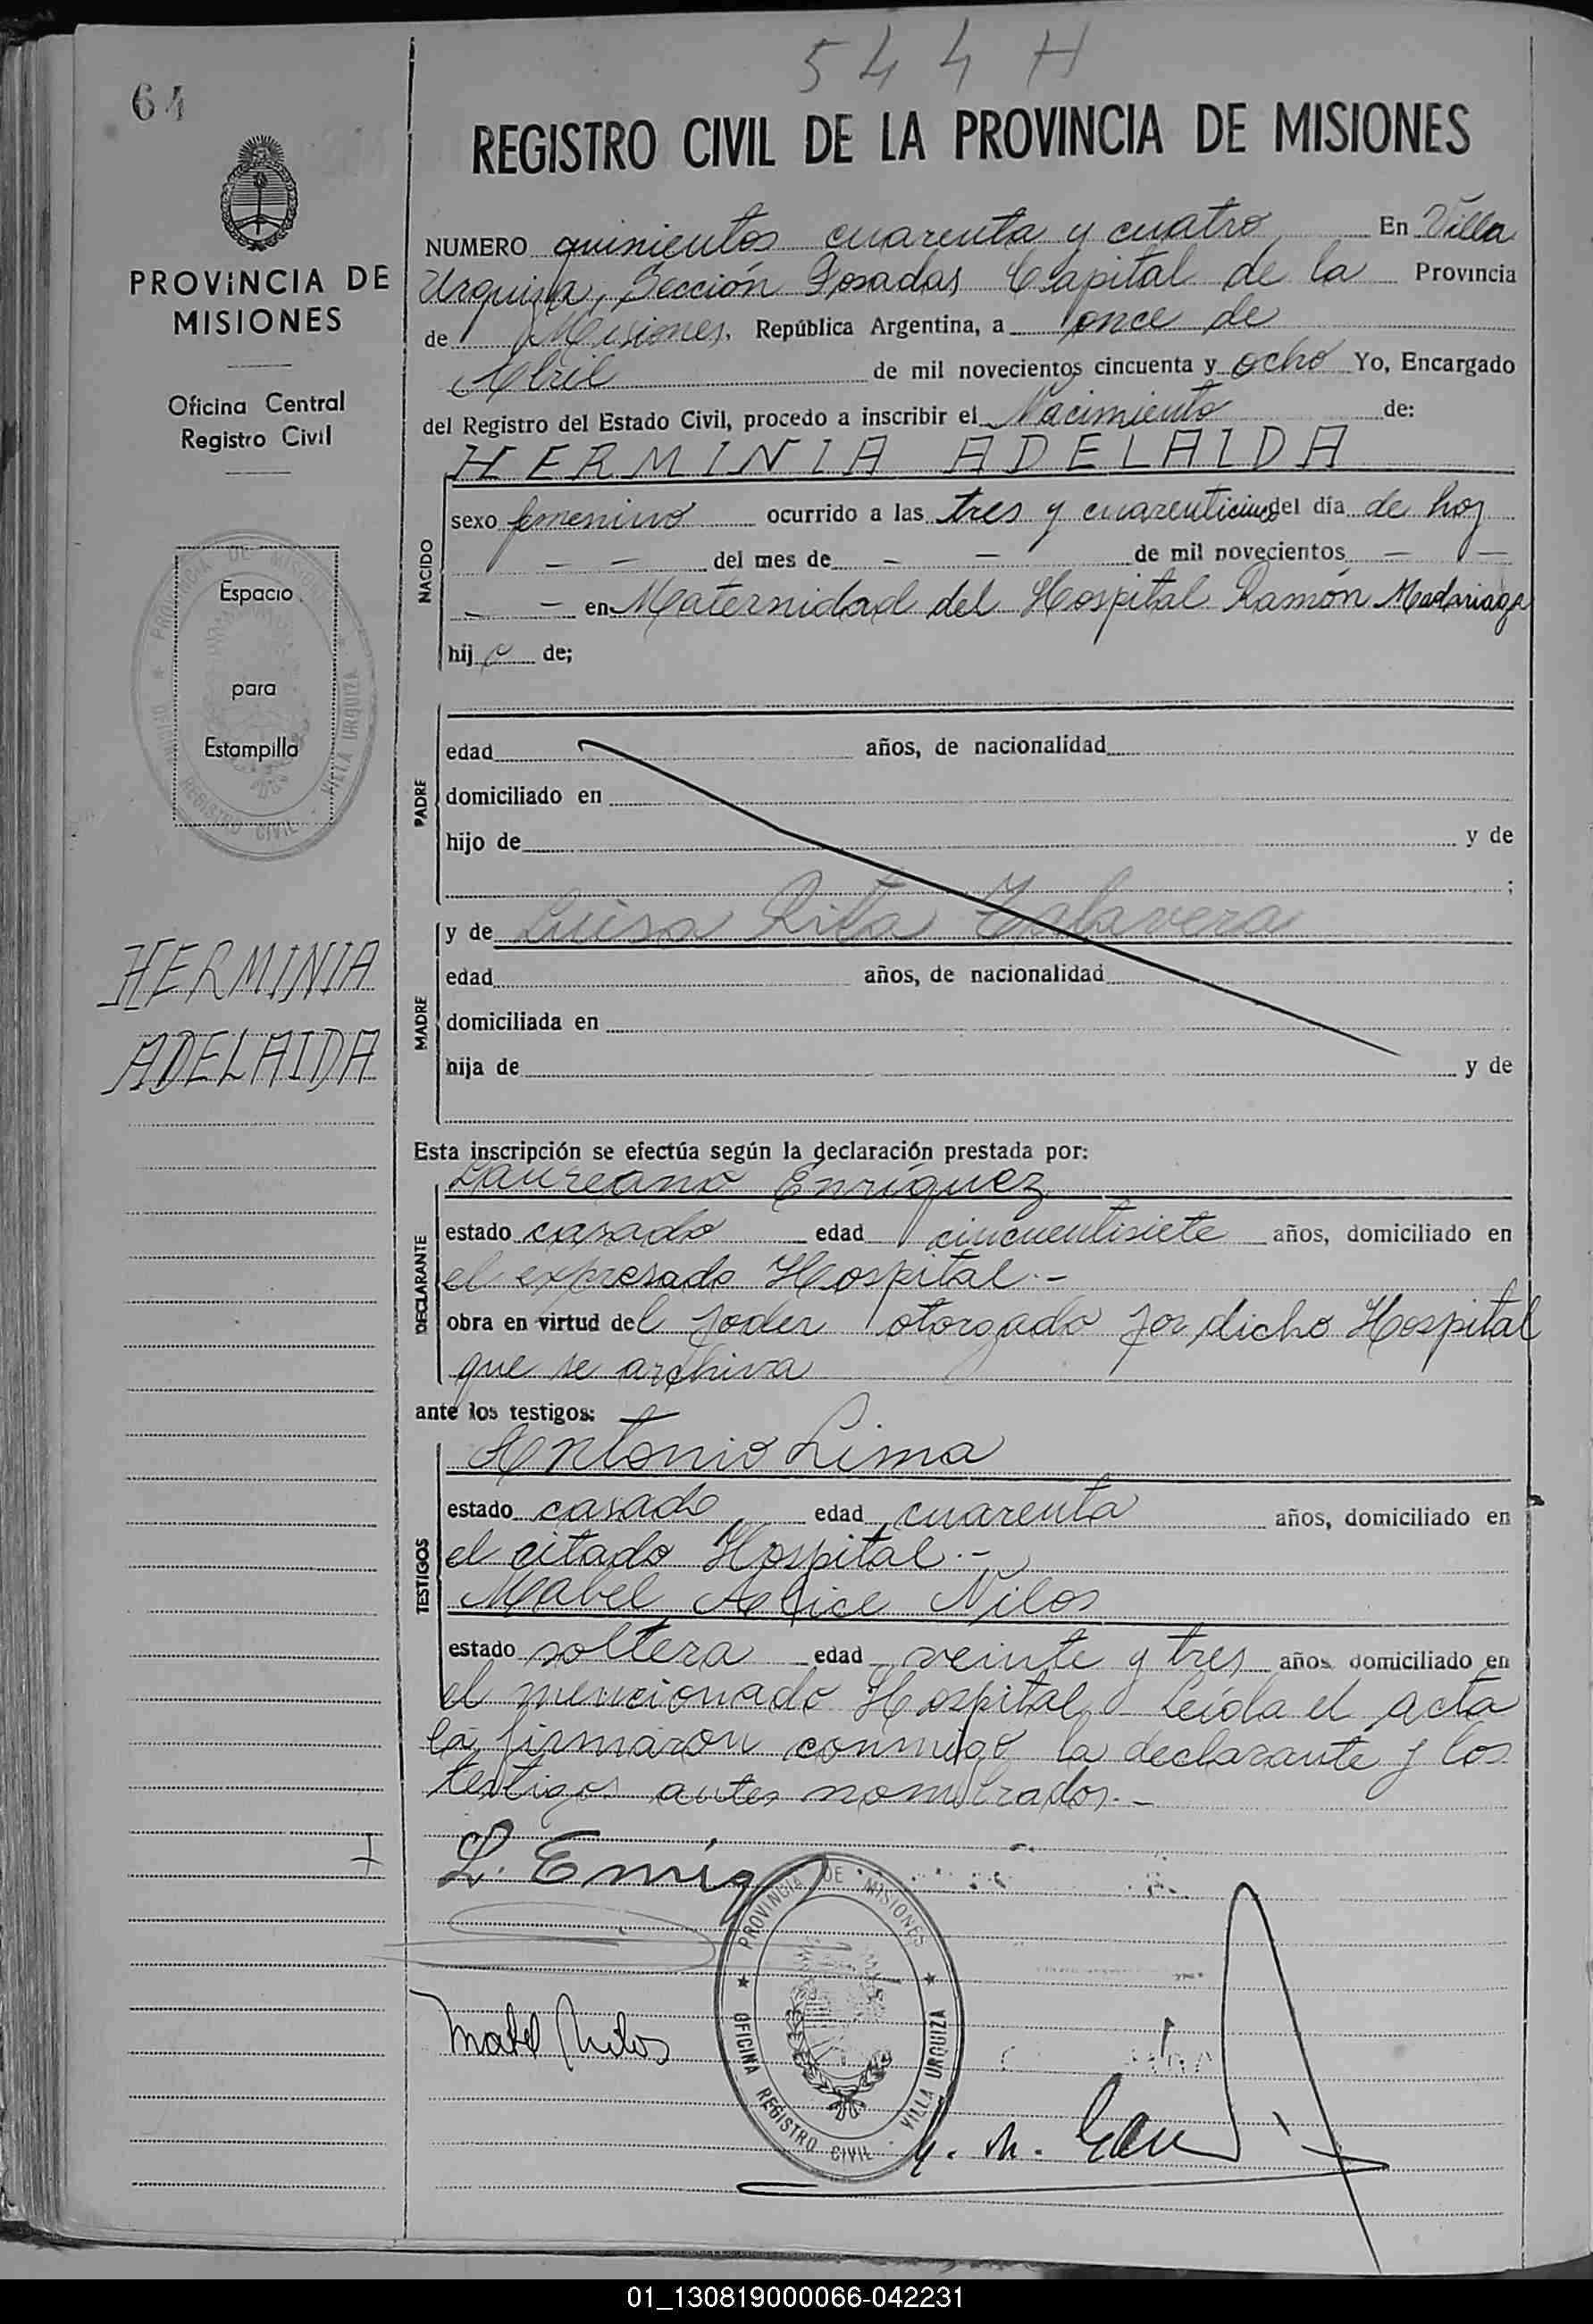 544 H
64
REGISTRO CIVIL DE LA PROVINCIA DE MISIONES
PROVINCIA DE
MISIONES
Oficina Central
Registro Civil
NUMERO quinientos cuarenta y cuatro En Villa
Urquiza, Sección Posadas Capital de la Provincia
de Misiones, República Argentina, a once de
Abril de mil novecientos cincuenta y ocho Yo, Encargado
del Registro del Estado Civil, procedo a inscribir el Nacimiento de:
HERMINIA ADELAIDA
NACIDO
sexo femenino ocurrido a las tres y cuarenticinco del día de hoy
— — del mes de — — de mil novecientos — —
— — en Maternidad del Hospital Ramón Madariaga
hij de;
Espacio
para
Estampilla
PROVINCIA DE MISIONES
OFICINA REGISTRO CIVIL - VILLA URQUIZA
PADRE
edad años, de nacionalidad
domiciliado en
hijo de y de
;
MADRE
y de Luisa Rita Talavera
edad años, de nacionalidad
domiciliada en
hija de y de
HERMINIA
ADELAIDA
Esta inscripción se efectúa según la declaración prestada por:
DECLARANTE
Laureano Enríquez
estado casado edad cincuentisiete años, domiciliado en
el expresado Hospital.-
obra en virtud del poder otorgado por dicho Hospital
que se archiva
ante los testigos:
TESTIGOS
Antonio Lima
estado casado edad cuarenta años, domiciliado en
el citado Hospital.-
Mabel Alice Nilos
estado soltera edad veinte y tres años domiciliado en
el mencionado Hospital Leída el acta
la firmaron conmigo la declarante y los
testigos antes nombrados.-
PROVINCIA DE MISIONES
OFICINA REGISTRO CIVIL - VILLA URQUIZA
Mabel Nilos
01_130819000066-042231